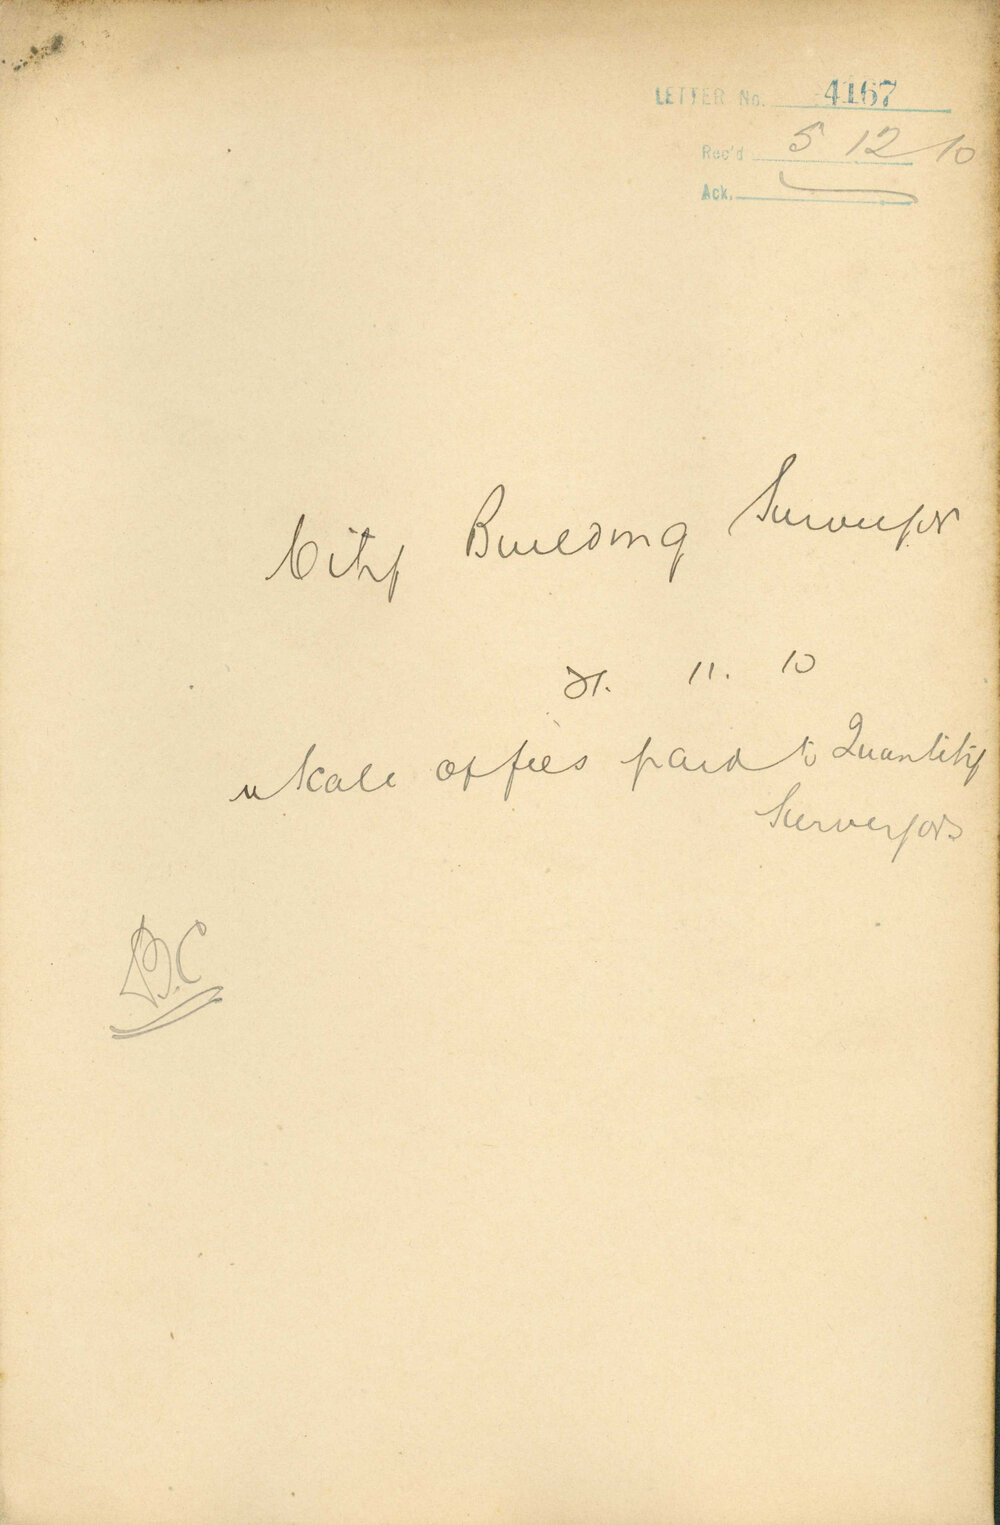 LETTER No. 4167
Rec'd 5 12 10
Ack.
City Building Surveyor
11. 10
Scale of fees paid to Quantity
Surveyors
B.C